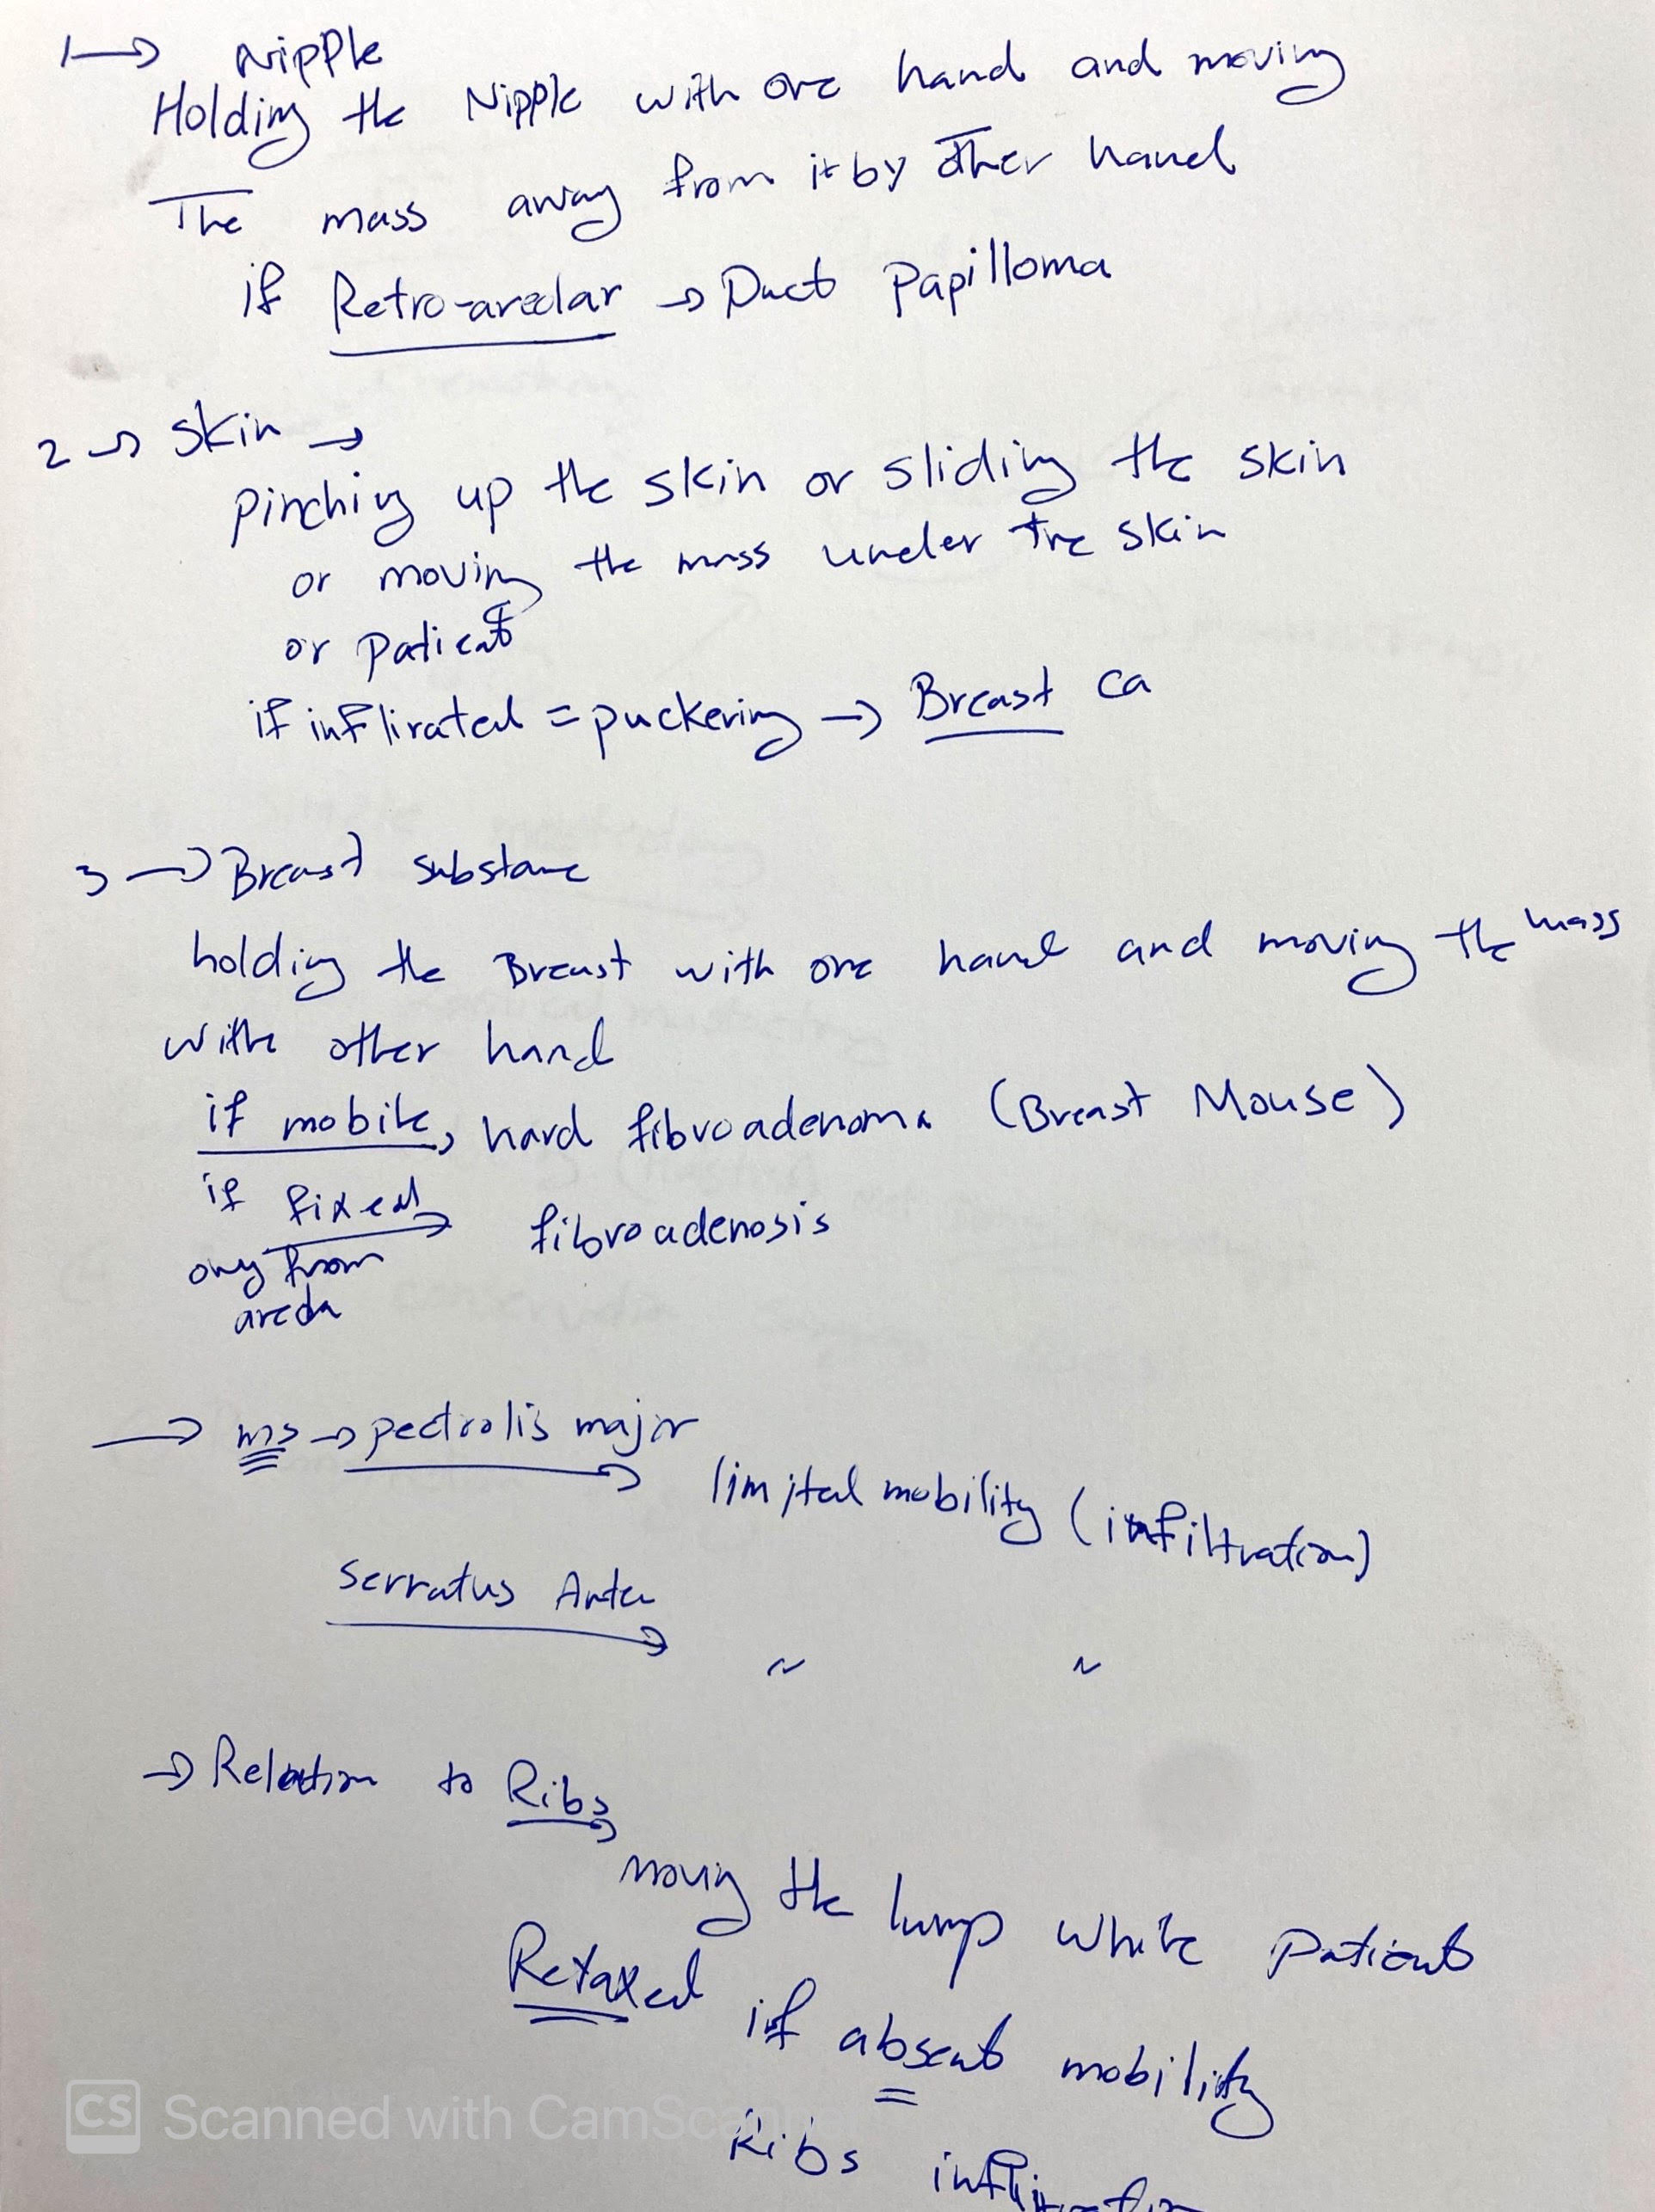 1→ Nipple
Holding the Nipple with one hand and moving
The mass away from it by other hand
if Retro-areolar → Duct Papilloma
2→ skin →
pinching up the skin or sliding the skin
or moving the mass under the skin
or patient
if inflirated = puckering → Breast ca
3→ Breast substance
holding the Breast with one hand and moving the mass
with other hand
if mobile, hard fibroadenoma (Breast Mouse)
if fixed → fibroadenosis
ony from
areola
→ ms → pectrolis major
limited mobility (infiltration)
Serratus Anter
" "
→ Relation to Ribs
moving the lump while patient
Retaxed if absent mobility
Ribs
CS Scanned with CamScanner